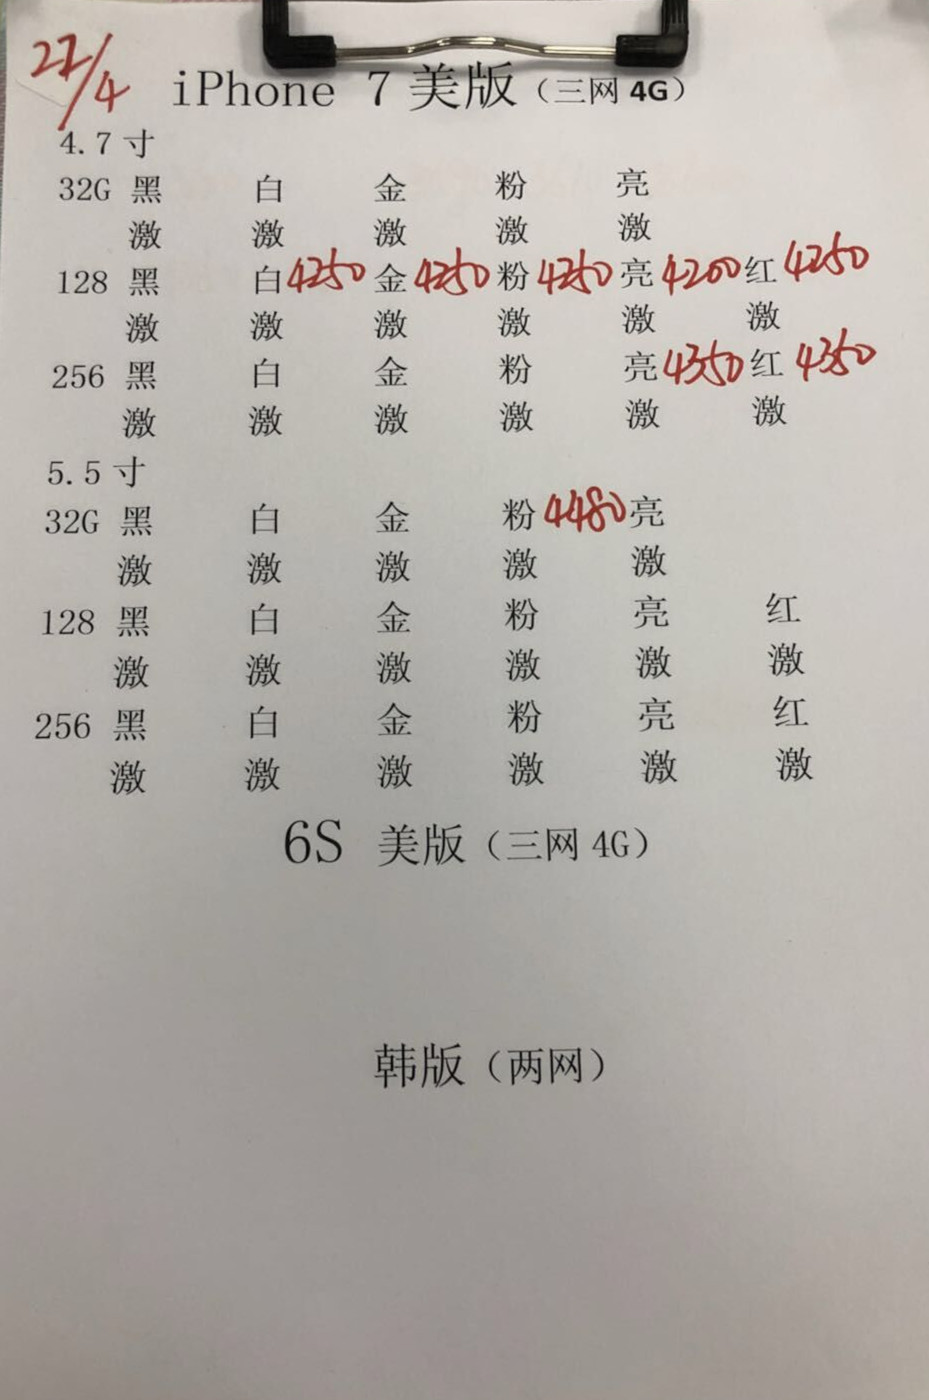 22/4
iPhone 7 美版（三网 4G）
4.7 寸
32G 黑 白 金 粉 亮
激 激 激 激 激
128 黑 白 4250 金 4250 粉 4250 亮 4200 红 4250
激 激 激 激 激 激
256 黑 白 金 粉 亮 4350 红 4350
激 激 激 激 激 激
5.5 寸
32G 黑 白 金 粉 4480 亮
激 激 激 激 激
128 黑 白 金 粉 亮 红
激 激 激 激 激 激
256 黑 白 金 粉 亮 红
激 激 激 激 激 激
6S 美版（三网 4G）
韩版（两网）